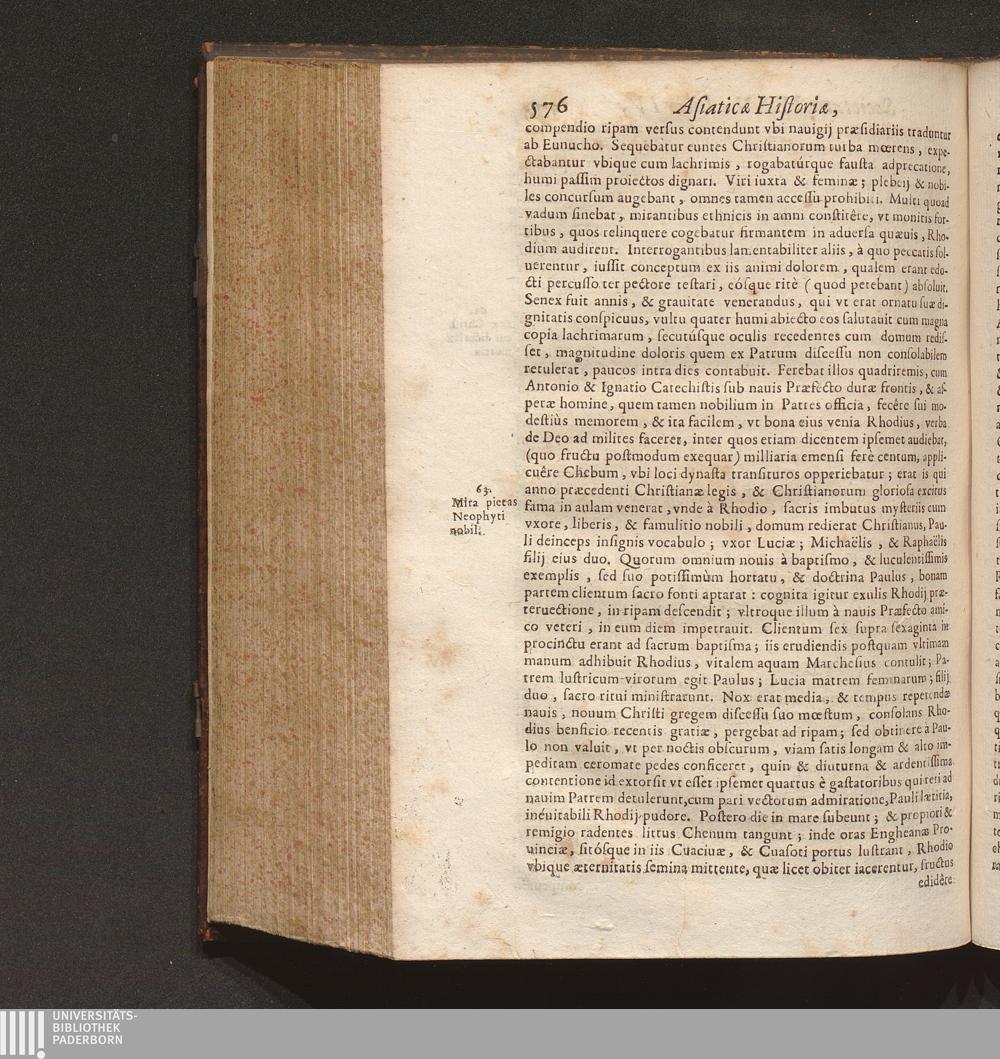 576 Asiaticæ Historiæ,
compendio ripam versus contendunt vbi nauigij præsidiariis traduntur
ab Eunucho. Sequebatur euntes Christianorum turba mœrens, expe-
ctabantur vbique cum lachrimis, rogabatúrque fausta adprecatione,
humi passim proiectos dignari. Viri iuxta & feminæ; plebeij & nobi-
les concursum augebant, omnes tamen accessu prohibiti. Multi quoad
vadum sinebat, mirantibus ethnicis in amni constitêre, vt monitis for-
tibus, quos relinquere cogebatur firmantem in aduersa quæuis, Rho-
dium audirent. Interrogantibus lamentabiliter aliis, à quo peccatis sol-
uerentur, iussit conceptum ex iis animi dolorem, qualem erant edo-
cti percusso ter pectore testari, eósque ritè (quod petebant) absoluit.
Senex fuit annis, & grauitate venerandus, qui vt erat ornatu suæ di-
gnitatis conspicuus, vultu quater humi abiecto eos salutauit cum magna
copia lachrimarum, secutúsque oculis recedentes cum domum redis-
set, magnitudine doloris quem ex Patrum discessu non consolabilem
retulerat, paucos intra dies contabuit. Ferebat illos quadriremis, cum
Antonio & Ignatio Catechistis sub nauis Præfecto duræ frontis, & as-
peræ homine, quem tamen nobilium in Patres officia, fecêre sui mo-
destiùs memorem, & ita facilem, vt bona eius venia Rhodius, verba
de Deo ad milites faceret, inter quos etiam dicentem ipsemet audiebat,
(quo fructu postmodum exequar) milliaria emensi ferè centum, appli-
cuêre Chebum, vbi loci dynasta transituros opperiebatur; erat is qui
63.
Mira pietas
Neophyti
nobili.
anno præcedenti Christianæ legis, & Christianorum gloriosa excitus
fama in aulam venerat, vnde à Rhodio, sacris imbutus mysteriis cum
vxore, liberis, & famulitio nobili, domum redierat Christianus, Pau-
li deinceps insignis vocabulo; vxor Luciæ; Michaëlis, & Raphaëlis
filij eius duo. Quorum omnium nouis à baptismo, & luculentissimis
exemplis, sed suo potissimùm hortatu, & doctrina Paulus, bonam
partem clientum sacro fonti aptarat: cognita igitur exulis Rhodij præ-
teruectione, in ripam descendit; vltroque illum à nauis Præfecto ami-
co veteri, in eum diem impetrauit. Clientum sex supra sexaginta in
procinctu erant ad sacrum baptisma; iis erudiendis postquam vltimam
manum adhibuit Rhodius, vitalem aquam Marchesius contulit; Pa-
trem lustricum virorum egit Paulus; Lucia matrem feminarum; filij
duo, sacro ritui ministrarunt. Nox erat media, & tempus repetendæ
nauis, nouum Christi gregem discessu suo mœstum, consolans Rho-
dius benficio recentis gratiæ, pergebat ad ripam; sed obtinere à Pau-
lo non valuit, vt per noctis obscurum, viam satis longam & alto im-
peditam ceromate pedes conficeret, quin & diuturna & ardentissima
contentione id extorsit vt esset ipsemet quartus è gastatoribus qui reti ad
nauim Patrem detulerunt, cum pari vectorum admiratione, Pauli lætitia,
inéuitabili Rhodij pudore. Postero die in mare subeunt; & propiori &
remigio radentes littus Chenum tangunt; inde oras Engheanæ Pro-
uinciæ, sitósque in iis Cuaciuæ, & Cuasoti portus lustrant, Rhodio
vbique æternitatis semina mittente, quæ licet obiter iacerentur, fructus
edidêre
UNIVERSITÄTS-
BIBLIOTHEK
PADERBORN